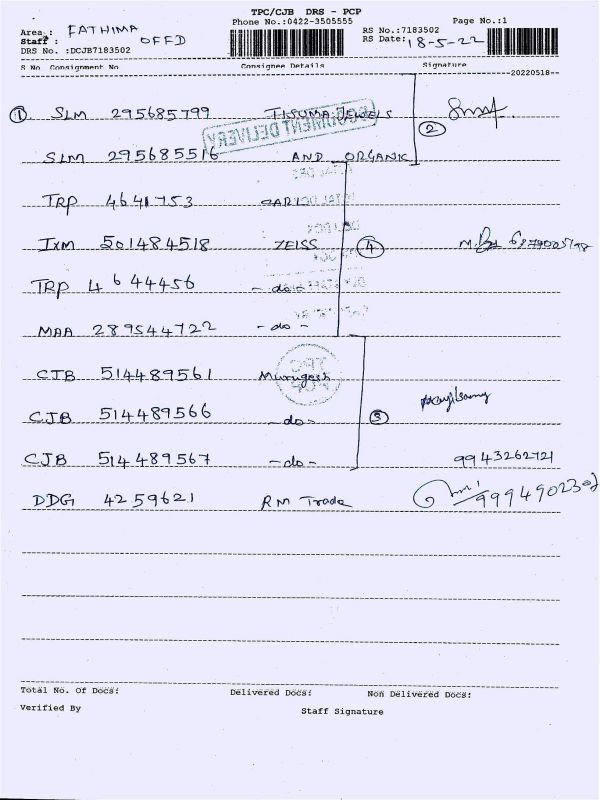 TPC/CJB DRS - PCP
Phone No.:0422-3505555 Page No.:1
Area : FATHIMA RS No.:7183502
Staff : OFFD RS Date: 18-5-22
DRS No. :DCJB7183502
S No Consignment No Consignee Details Signature
20220518
① SLM 295685799 TISUMA JEWELS ②
DOCUMENT DELIVERY
SLM 295685516 AND ORGANIC
TRP 4641753
IXM 501484518 ZEISS ④
TRP 4644456 - do -
MAA 289544722 - do -
CJB 514489561 Murugesh
CJB 514489566 - do - ③
CJB 514489567 - do - 9943262721
DDG 4259621 RM Trade
Total No. Of Docs: Delivered Docs: Non Delivered Docs:
Verified By Staff Signature